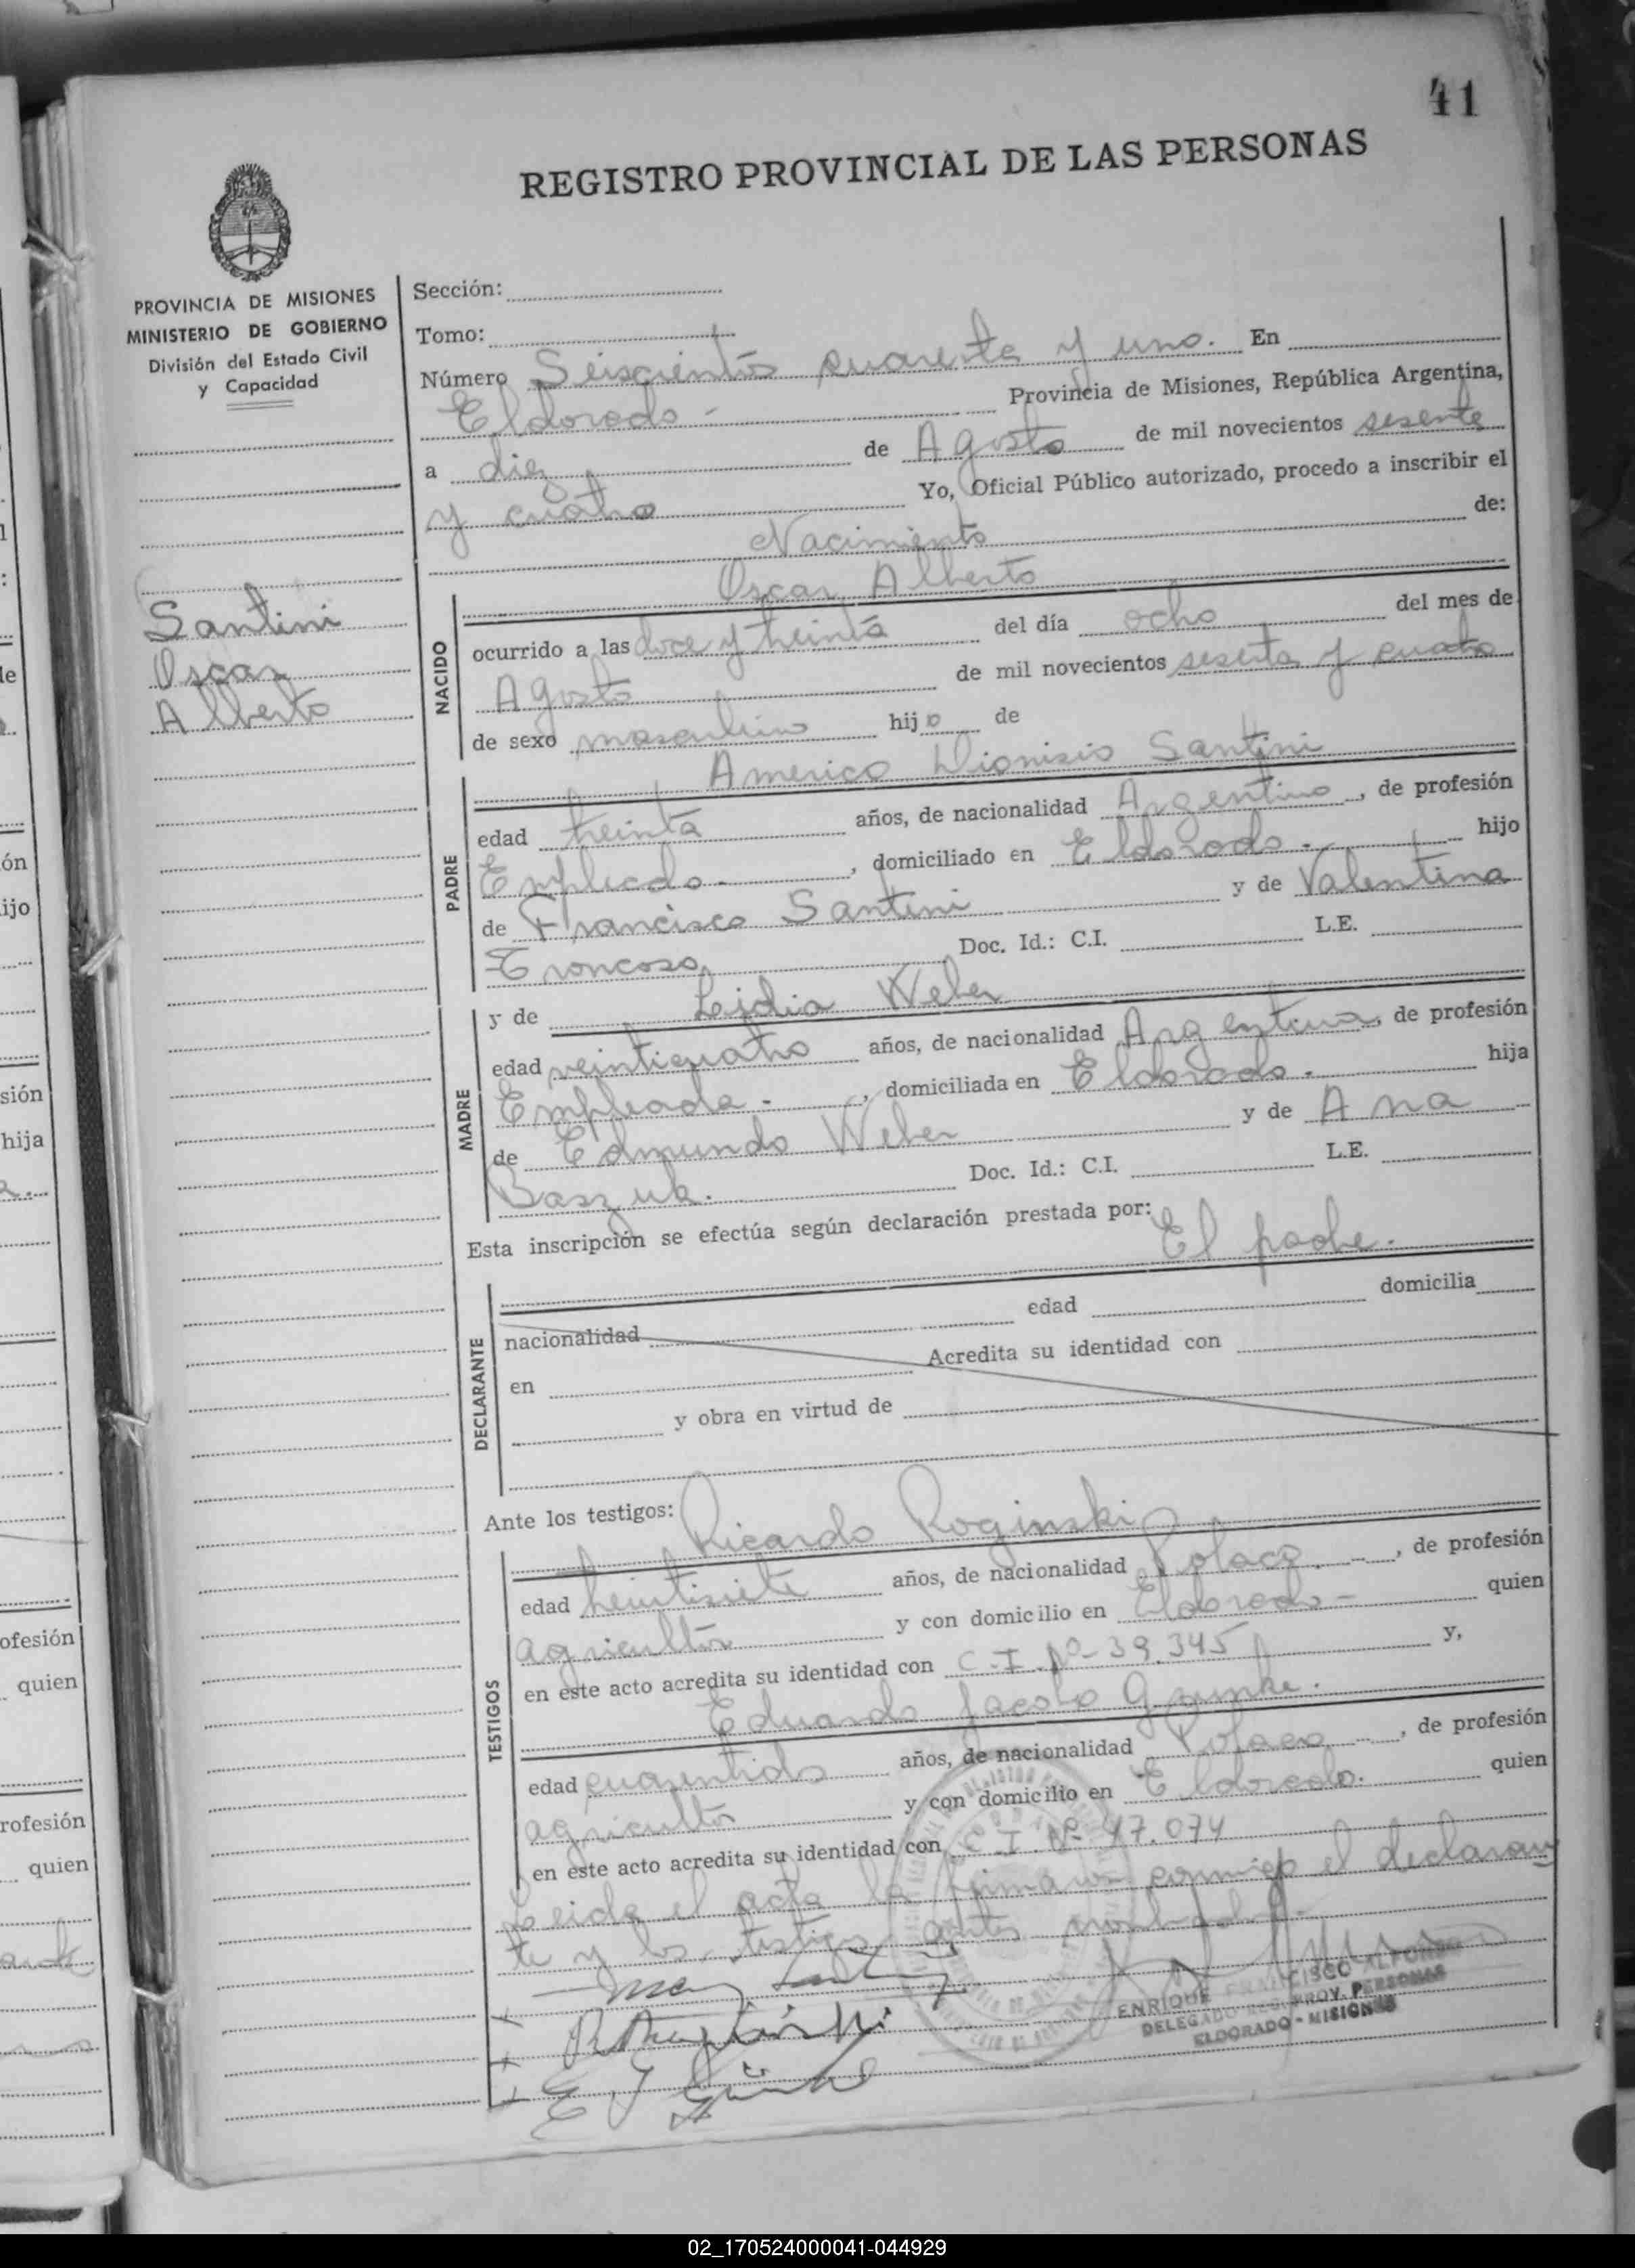 41
REGISTRO PROVINCIAL DE LAS PERSONAS
PROVINCIA DE MISIONES
MINISTERIO DE GOBIERNO
División del Estado Civil
y Capacidad
Santini
Oscar
Alberto
Sección:
Tomo:
Número Seiscientos cuarenta y uno. En
Eldorado - Provincia de Misiones, República Argentina,
a diez de Agosto de mil novecientos sesenta
y cuatro Yo, Oficial Público autorizado, procedo a inscribir el
Nacimiento de:
Oscar Alberto
NACIDO
ocurrido a las doce y treinta del día ocho del mes de
Agosto de mil novecientos sesenta y cuatro
de sexo masculino hijo de
Americo Dionisio Santini
PADRE
edad treinta años, de nacionalidad Argentino, de profesión
Empleado.-, domiciliado en Eldorado.- hijo
de Francisco Santini y de Valentina
Troncoso Doc. Id.: C.I. L.E.
y de Lidia Weber
MADRE
edad veinticuatro años, de nacionalidad Argentina, de profesión
Empleada.-, domiciliada en Eldorado.- hija
de Edmundo Weber y de Ana
Baszuk. Doc. Id.: C.I. L.E.
Esta inscripción se efectúa según declaración prestada por: El padre.
DECLARANTE
edad domicilia
nacionalidad
en Acredita su identidad con
y obra en virtud de
Ante los testigos: Ricardo Roginski
TESTIGOS
edad años, de nacionalidad Polaco, de profesión
agricultor y con domicilio en Eldorado - quien
en este acto acredita su identidad con C.I.Nº-39.345 y,
Eduardo Jacobo
edad cuarentidos años, de nacionalidad Polaco, de profesión
agricultor y con domicilio en Eldorado. quien
en este acto acredita su identidad con C.I.Nº 47.074
Leida el acta la firman conmigo el declaran
te y los testigos antes nombrados.-
ENRIQUE FRANCISCO
DELEGADO REG. PROV. PERSONAS
ELDORADO - MISIONES
ón
ijo
sión
hija
ofesión
quien
rofesión
quien
02_170524000041-044929